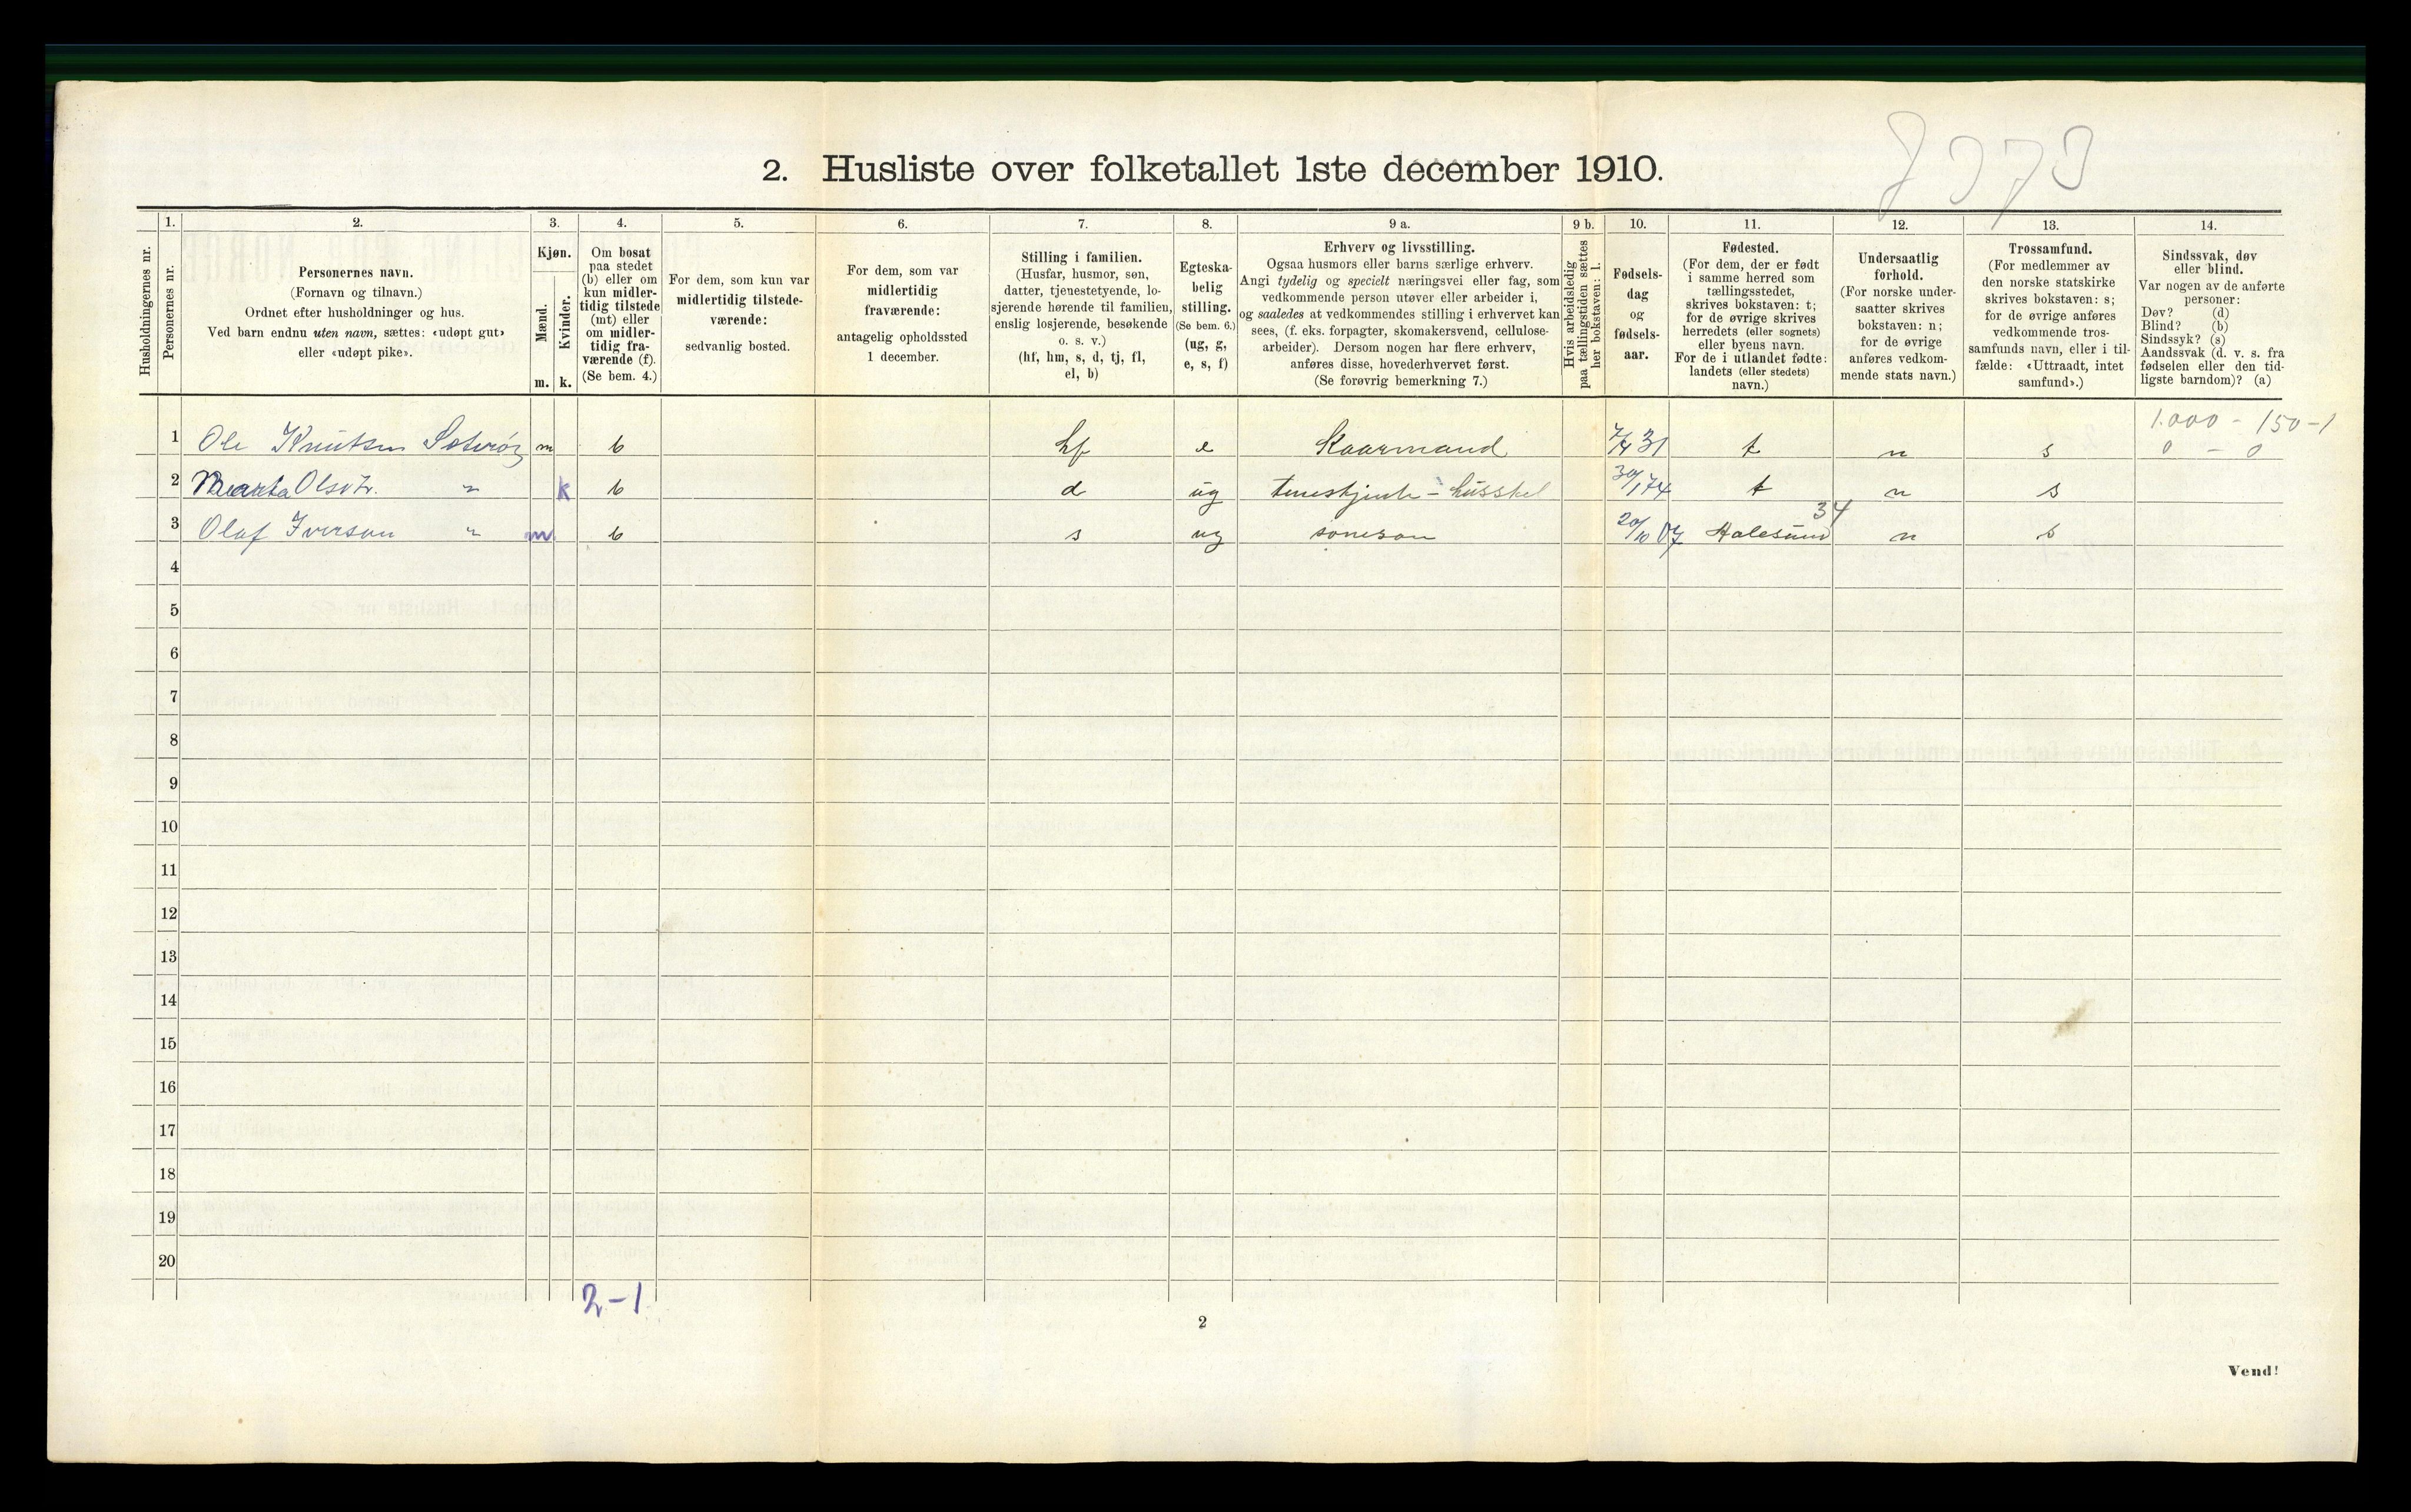 2. Husliste over folketallet 1ste december 1910.
Husholdningernes nr.
1.
Personernes nr.
2.
Personernes navn.
(Fornavn og tilnavn.)
Ordnet efter husholdninger og hus.
Ved barn endnu uten navn, sættes: «udøpt gut»
eller «udøpt pike».
3.
Kjøn.
Mænd.
m.
Kvinder.
k.
4.
Om bosat
paa stedet
(b) eller om
kun midler-
tidig tilstede
(mt) eller
om midler-
tidig fra-
værende (f).
(Se bem. 4.)
5.
For dem, som kun var
midlertidig tilstede-
værende:
sedvanlig bosted.
6.
For dem, som var
midlertidig
fraværende:
antagelig opholdssted
1 december.
7.
Stilling i familien.
(Husfar, husmor, søn,
datter, tjenestetyende, lo-
sjerende hørende til familien,
enslig losjerende, besøkende
o. s. v.)
(hf, hm, s, d, tj, fl,
el, b)
8.
Egteska-
belig
stilling.
(Se bem. 6.)
(ug, g,
e, s, f)
9 a.
Erhverv og livsstilling.
Ogsaa husmors eller barns særlige erhverv.
Angi tydelig og specielt næringsvei eller fag, som
vedkommende person utøver eller arbeider i,
og saaledes at vedkommendes stilling i erhvervet kan
sees, (f. eks. forpagter, skomakersvend, cellulose-
arbeider). Dersom nogen har flere erhverv,
anføres disse, hovederhvervet først.
(Se forøvrig bemerkning 7.)
9 b.
Hvis arbeidsledig
paa tællingstiden sættes
her bokstaven: l.
10.
Fødsels-
dag
og
fødsels-
aar.
11.
Fødested.
(For dem, der er født
i samme herred som
tællingsstedet,
skrives bokstaven: t;
for de øvrige skrives
herredets (eller sognets)
eller byens navn.
For de i utlandet fødte:
landets (eller stedets)
navn.)
12.
Undersaatlig
forhold.
(For norske under-
saatter skrives
bokstaven: n;
for de øvrige
anføres vedkom-
mende stats navn.)
13.
Trossamfund.
(For medlemmer av
den norske statskirke
skrives bokstaven: s;
for de øvrige anføres
vedkommende tros-
samfunds navn, eller i til-
fælde: «Uttraadt, intet
samfund».)
14.
Sindssvak, døv
eller blind.
Var nogen av de anførte
personer:
Døv? (d)
Blind? (b)
Sindssyk? (s)
Aandssvak (d. v. s. fra
fødselen eller den tid-
ligste barndom)? (a)
1.000 - 150-1
0 - 0
1 Ole Knutsen m b hf e Kaarmand 7/4 31 t n s
2 Marta Olsdtr. " k b d ug 30/1 74 t n s
34
3 Olaf Iverson " m b s ug soneson 20/10 07 Aalesund n s
4
5
6
7
8
9
10
11
12
13
14
15
16
17
18
19
20
2-1
2
Vend!